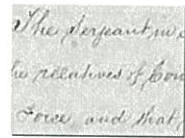 The Serjeant in
he relatives of Con
Force and that,